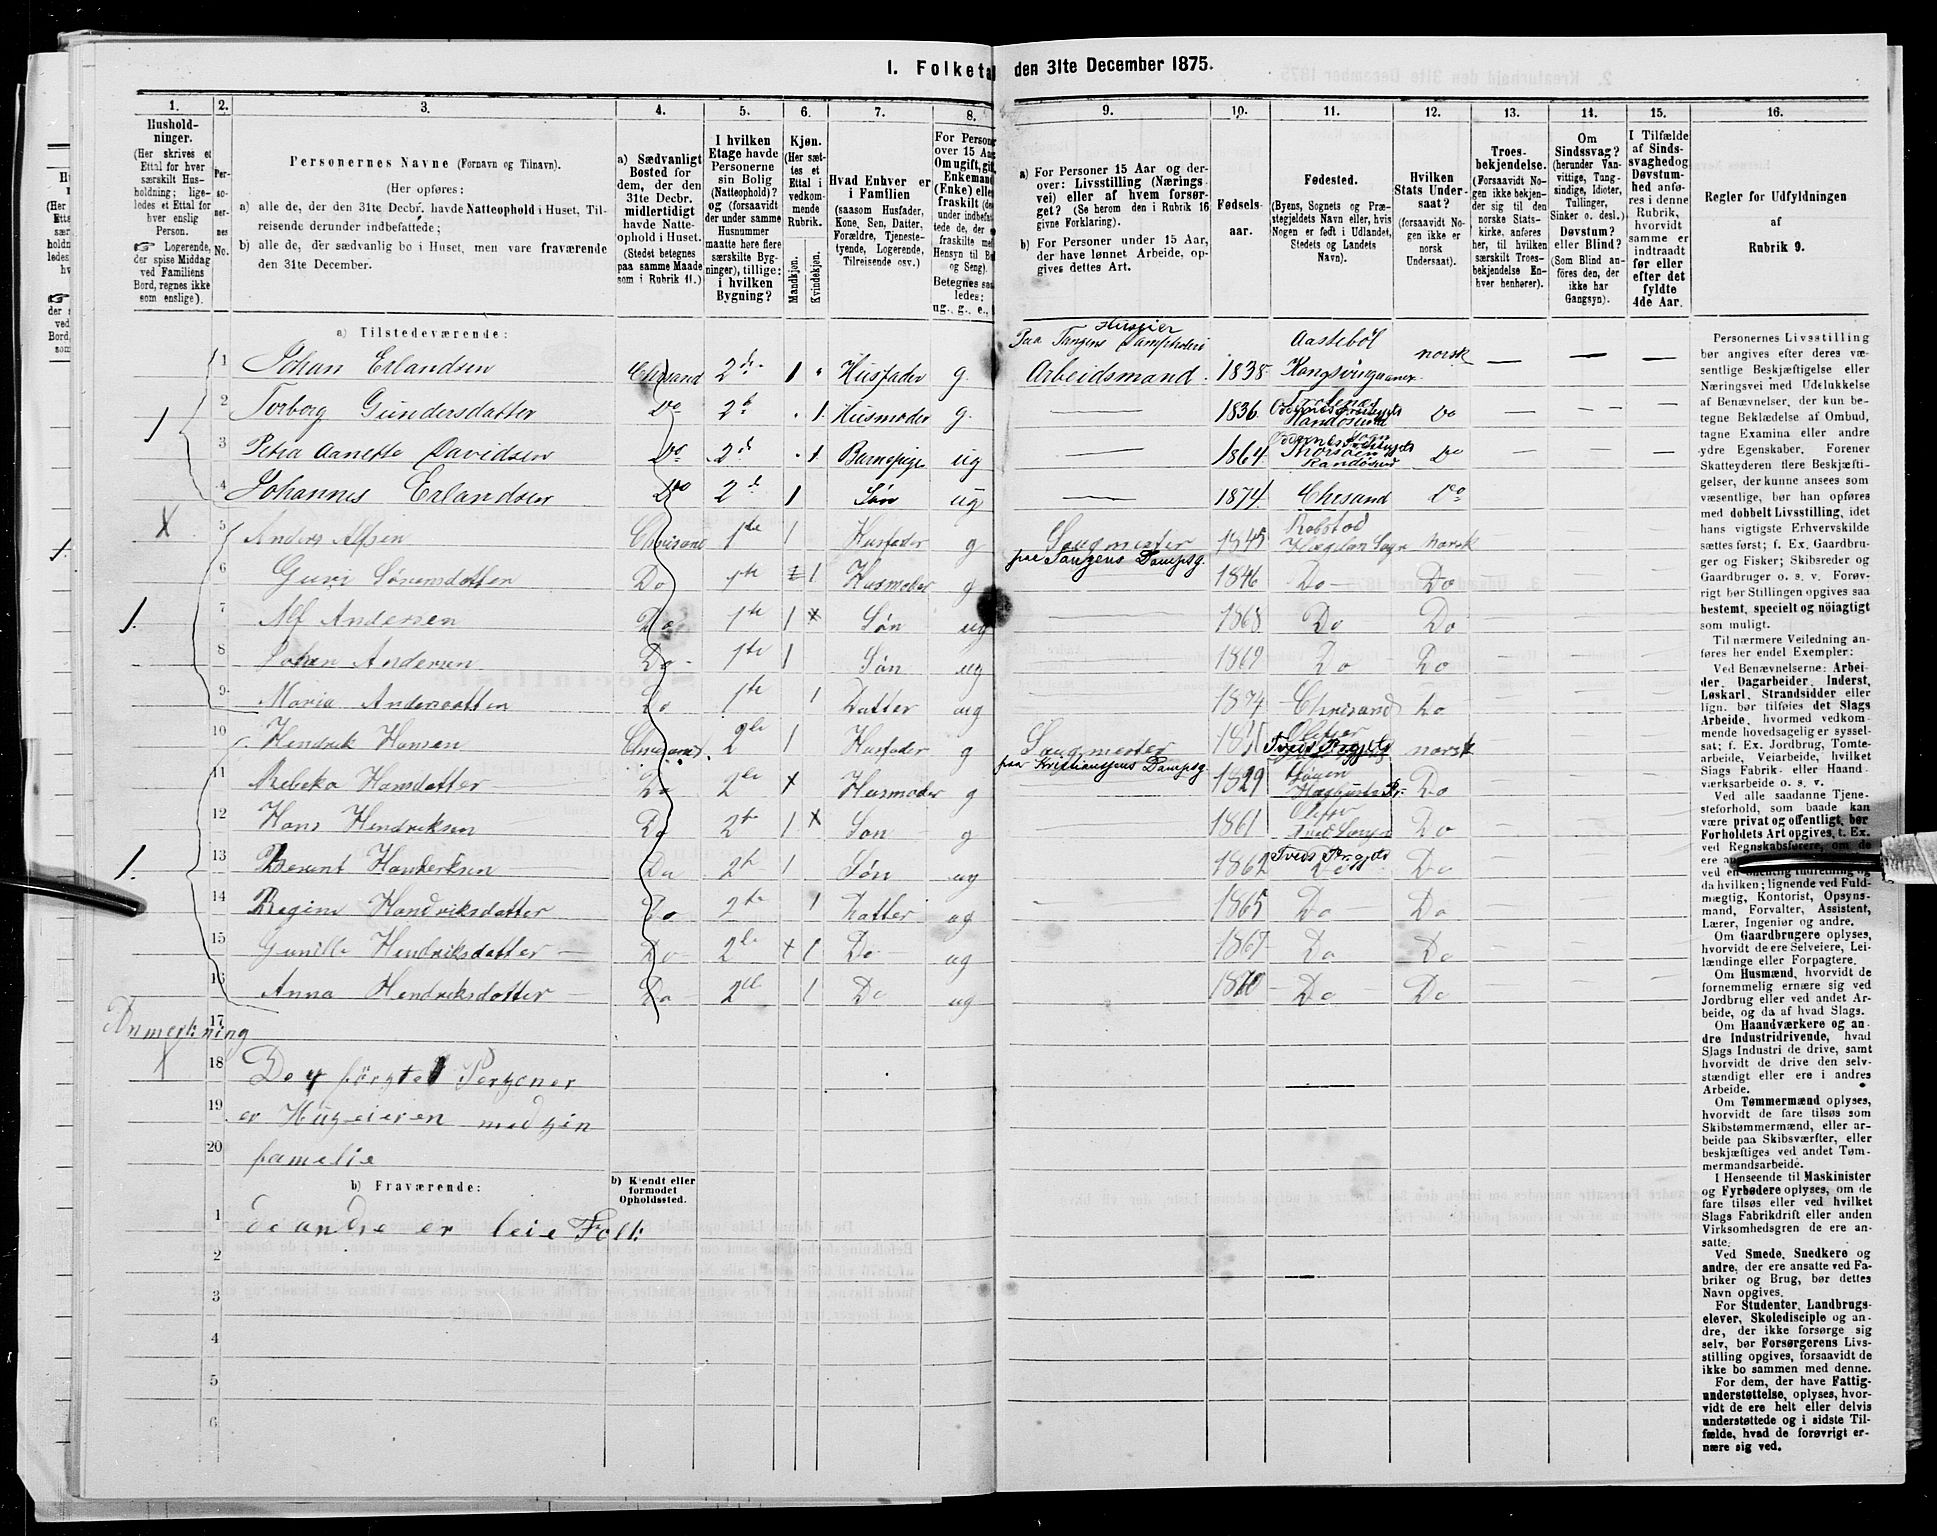 1. Folketal den 31te December 1875.
1. 2. 3. 4. 5. 6. 7. 8. 9. 10. 11. 12. 13. 14. 15. 16.
Husholdninger.
(Her skrives et Ettal for hver særskilt Husholdning; ligeledes et Ettal for hver enslig Person.
☞ Logerende, der spise Middag ved Familiens Bord, regnes ikke som enslige).
Personernes No.
Personernes Navne (Fornavn og Tilnavn).
(Her opføres:
a) alle de, der den 31te Decbr. havde Natteophold i Huset, Tilreisende derunder indbefattede;
b) alle de, der sædvanlig bo i Huset, men vare fraværende den 31te December.
a) Sædvanligt Bosted for dem, der den 31te Decbr. midlertidigt havde Natteophold i Huset. (Stedet betegnes paa samme Maade som i Rubrik 11.)
I hvilken Etage havde Personerne sin Bolig (Natteophold)? og (forsaavidt der under samme Husnummer maatte høre flere særskilte Bygninger), tillige: i hvilken Bygning?
Kjøn.
(Her sættes et Ettal i vedkommende Rubrik.
Mandkjøn. Kvindekjøn.
Hvad Enhver er i Familien
(saasom Husfader, Kone, Søn, Datter, Forældre, Tjenestetyende, Logerende, Tilreisende osv.)
For Personer over 15 Aar: Om ugift, gift, Enkemand (Enke) eller fraskilt
Betegnes saaledes: ug., g., e.,
a) For Personer 15 Aar og derover: Livsstilling (Næringsvei) eller af hvem forsørget? (Se herom den i Rubrik 16 givne Forklaring).
b) For Personer under 15 Aar, der have lønnet Arbeide, opgives dettes Art.
Fødselsaar.
Fødested.
(Byens, Sognets og Præstegjeldets Navn eller, hvis Nogen er født i Udlandet, Stedets og Landets Navn).
Hvilken Stats Undersaat?
(forsaavidt Nogen ikke er norsk Undersaat).
Troesbekjendelse.
(Forsaavidt Nogen ikke bekjender sig til den norske Statskirke, anføres her, til hvilken særskilt Troesbekjendelse Enhver henhører).
Om Sindssvag? (herunder Vanvittige, Tungsindige, Idioter, Tullinger, Sinker o. desl.) Døvstum? eller Blind? (Som Blind anføres den, der ikke har Gangsyn).
I Tilfælde af Sindssvaghed og Døvstumhed anføres i denne Rubrik, hvorvidt samme er indtraadt før eller efter det fyldte 4de Aar.
Regler for Udfyldningen af Rubrik 9.
a) Tilstedeværende:
1 Johan Erlandsen Chrsand 2d 1 Husfader g. Huseier Paa Tangens Arbeidsmand. 1838 norsk — — —
2 Torborg Gundersdatter Do 2d 1 Husmoder g. — 1836 Do
1
3 Petra Aanette Davidsen Do 2d 1 Barnepige ug — 1864 Do
4 Johannes Erlandsen Do 2d 1 Søn ug — 1874 Chrsand Do
X
5 Anders Alfsen Chrisand 1te 1 Husfader g Saugmester paa Tangens Dampsg. 1845 norsk
6 Guri Sørensdatter Do 1te 1 Husmoder g — 1846 Do Do
1.
7 Alf Andersen Do 1te 1 Søn ug — 1868 Do Do
8 Johan Andersen Do 1te 1 Søn ug — 1869 Do Do
9 Maria Andersdatter Do 1te 1 Datter ug 1874 Chrisand Do
10 Hendrik Hansen Chrisand 2de 1 Husfader g Saugmester paa Kristianssens Dampsg. Tveds Prgjeld norsk
11 Rebeka Hansdatter Do 2de X Husmoder g — 1829 Do
12 Hans Hendriksen Do 2de 1 X Søn g 1861 Do
1.
13 Berent Henderksen Do 2de 1 Søn ug 1862 Tveds Prgjeld Do Do
14 Regine Hendriksdatter Do 2de 1 Datter ug 1865 Do Do
15 Gunille Hendriksdatter Do 2de X 1 Do ug 1867 Do Do
16 Anna Hendriksdatter Do 2de 1 Do ug 1870 Do Do
17
Anmerkning
X
18 De 4 første Personer
19 er Huseieren med sin
20 famelie
b) Fraværende:
b) Kjendt eller formodet Opholdssted.
1 de andre er leie Folk
2
3
4
5
6
Personernes Livsstilling bør angives efter deres væsentlige Beskjæftigelse eller Næringsvei med Udelukkelse af Benævnelser, der kun betegne Beklædelse af Ombud, tagne Examina eller andre ydre Egenskaber. Forener Skatteyderen flere Beskjæftigelser, der kunne ansees som væsentlige, bør han opføres med dobbelt Livsstilling, idet hans vigtigste Erhvervskilde sættes først; f. Ex. Gaardbruger og Fisker; Skibsreder og Gaardbruger o. s. v. Forøvrigt bør Stillingen opgives saa bestemt, specielt og nöiagtigt som muligt.
Til nærmere Veiledning anføres her endel Exempler:
Ved Benævnelserne: Arbeider, Dagarbeider, Inderst, Løskarl, Strandsidder eller lign. bør tilføies det Slags Arbeide, hvormed vedkommende hovedsagelig er sysselsat; f. Ex. Jordbrug, Tomtearbeide, Veiarbeide, hvilket Slags Fabrik- eller Haandværksarbeide o. s. v.
Ved alle saadanne Tjenesteforhold, som baade kan være private og offentligt, bør Forholdets Art opgives, t. Ex. ved Regnskabsførere, om de ere an
ved en offentlig Indretning og da hvilken; lignende ved Fuldmægtig, Kontorist, Opsynsmand, Forvalter, Assistent, Lærer, Ingeniør og andre.
Om Gaardbrugere oplyses, hvorvidt de ere Selveiere, Leilændinge eller Forpagtere.
Om Husmænd, hvorvidt de fornemmelig ernære sig ved Jordbrug eller ved andet Arbeide, og da af hvad Slags.
Om Haandværkere og andre Industridrivende, hvad Slags Industri de drive, samt hvorvidt de drive den selvstændigt eller ere i andres Arbeide.
Om Tømmermænd oplyses, hvorvidt de fare tilsøs som Skibstømmermænd, eller arbeide paa Skibsværfter, eller beskjæftiges ved andet Tømmermandsarbeide.
I Henseende til Maskinister og Fyrbødere oplyses, om de fare tilsøs eller ved hvilket Slags Fabrikdrift eller anden Virksomhedsgren de ere ansatte.
Ved Smede, Snedkere og andre, der ere ansatte ved Fabriker og Brug, bør dettes Navn opgives.
For Studenter, Landbrugselever, Skoledisciple og andre, der ikke forsørge sig selv, bør Forsørgerens Livsstilling opgives, forsaavidt de ikke bo sammen med denne.
For dem, der have Fattigunderstøttelse, oplyses, hvorvidt de ere helt eller delvis understøttede og i sidste Tilfælde, hvad de forøvrigt ernære sig ved.